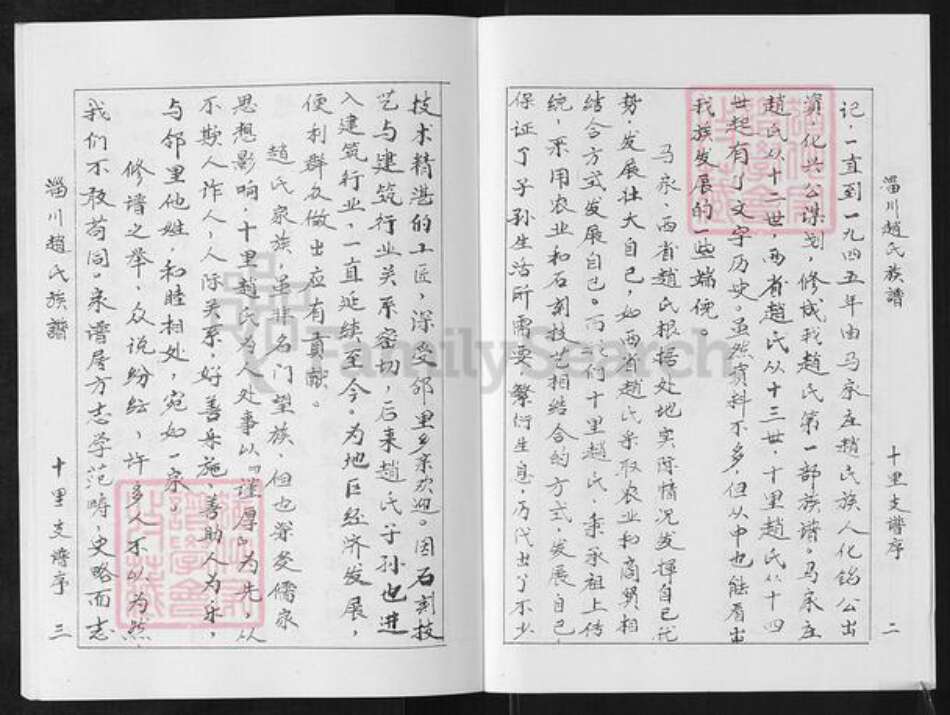 淄川趙氏族譜
十里支譜序
二
记，一直到一九四五年由马家庄趙氏族人化铭公出
资，化兴公谋划，修成我趙氏第一部族谱。马家庄
趙氏从十二世，西省趙氏从十三世，十里趙氏从十四
世起有了文字历史。虽然资料不多，但从中也能看出
我族发展的一些端倪。
马家、西省趙氏根据处地实际情况发挥自己优
势，发展壮大自己，如西省趙氏采取农业和商贸相
结合方式发展自己。而我们十里趙氏，秉承祖上传
统，采用农业和石刻技艺相结合的方式，发展自己，
保证了子孙生活所需要，繁衍生息，历代出了不少
技术精湛的工匠，深受邻里乡亲欢迎。因石刻技
艺与建筑行业关系密切，后来趙氏子孙也进
入建筑行业，一直延续至今。为地区经济发展，
便利群众做出应有贡献。
趙氏家族，虽非名门望族，但也深受儒家
思想影响，十里趙氏为人处事以『谨厚』为先，从
不欺人诈人，人际关系，好善乐施，善助人为乐，
与邻里他姓，和睦相处，宛如一家。
修谱之举，众说纷纭，许多人不以为然，
我们不敢苟同。家谱居方志学范畴，史略而志
淄川趙氏族譜
十里支谱序
三
FamilySearch